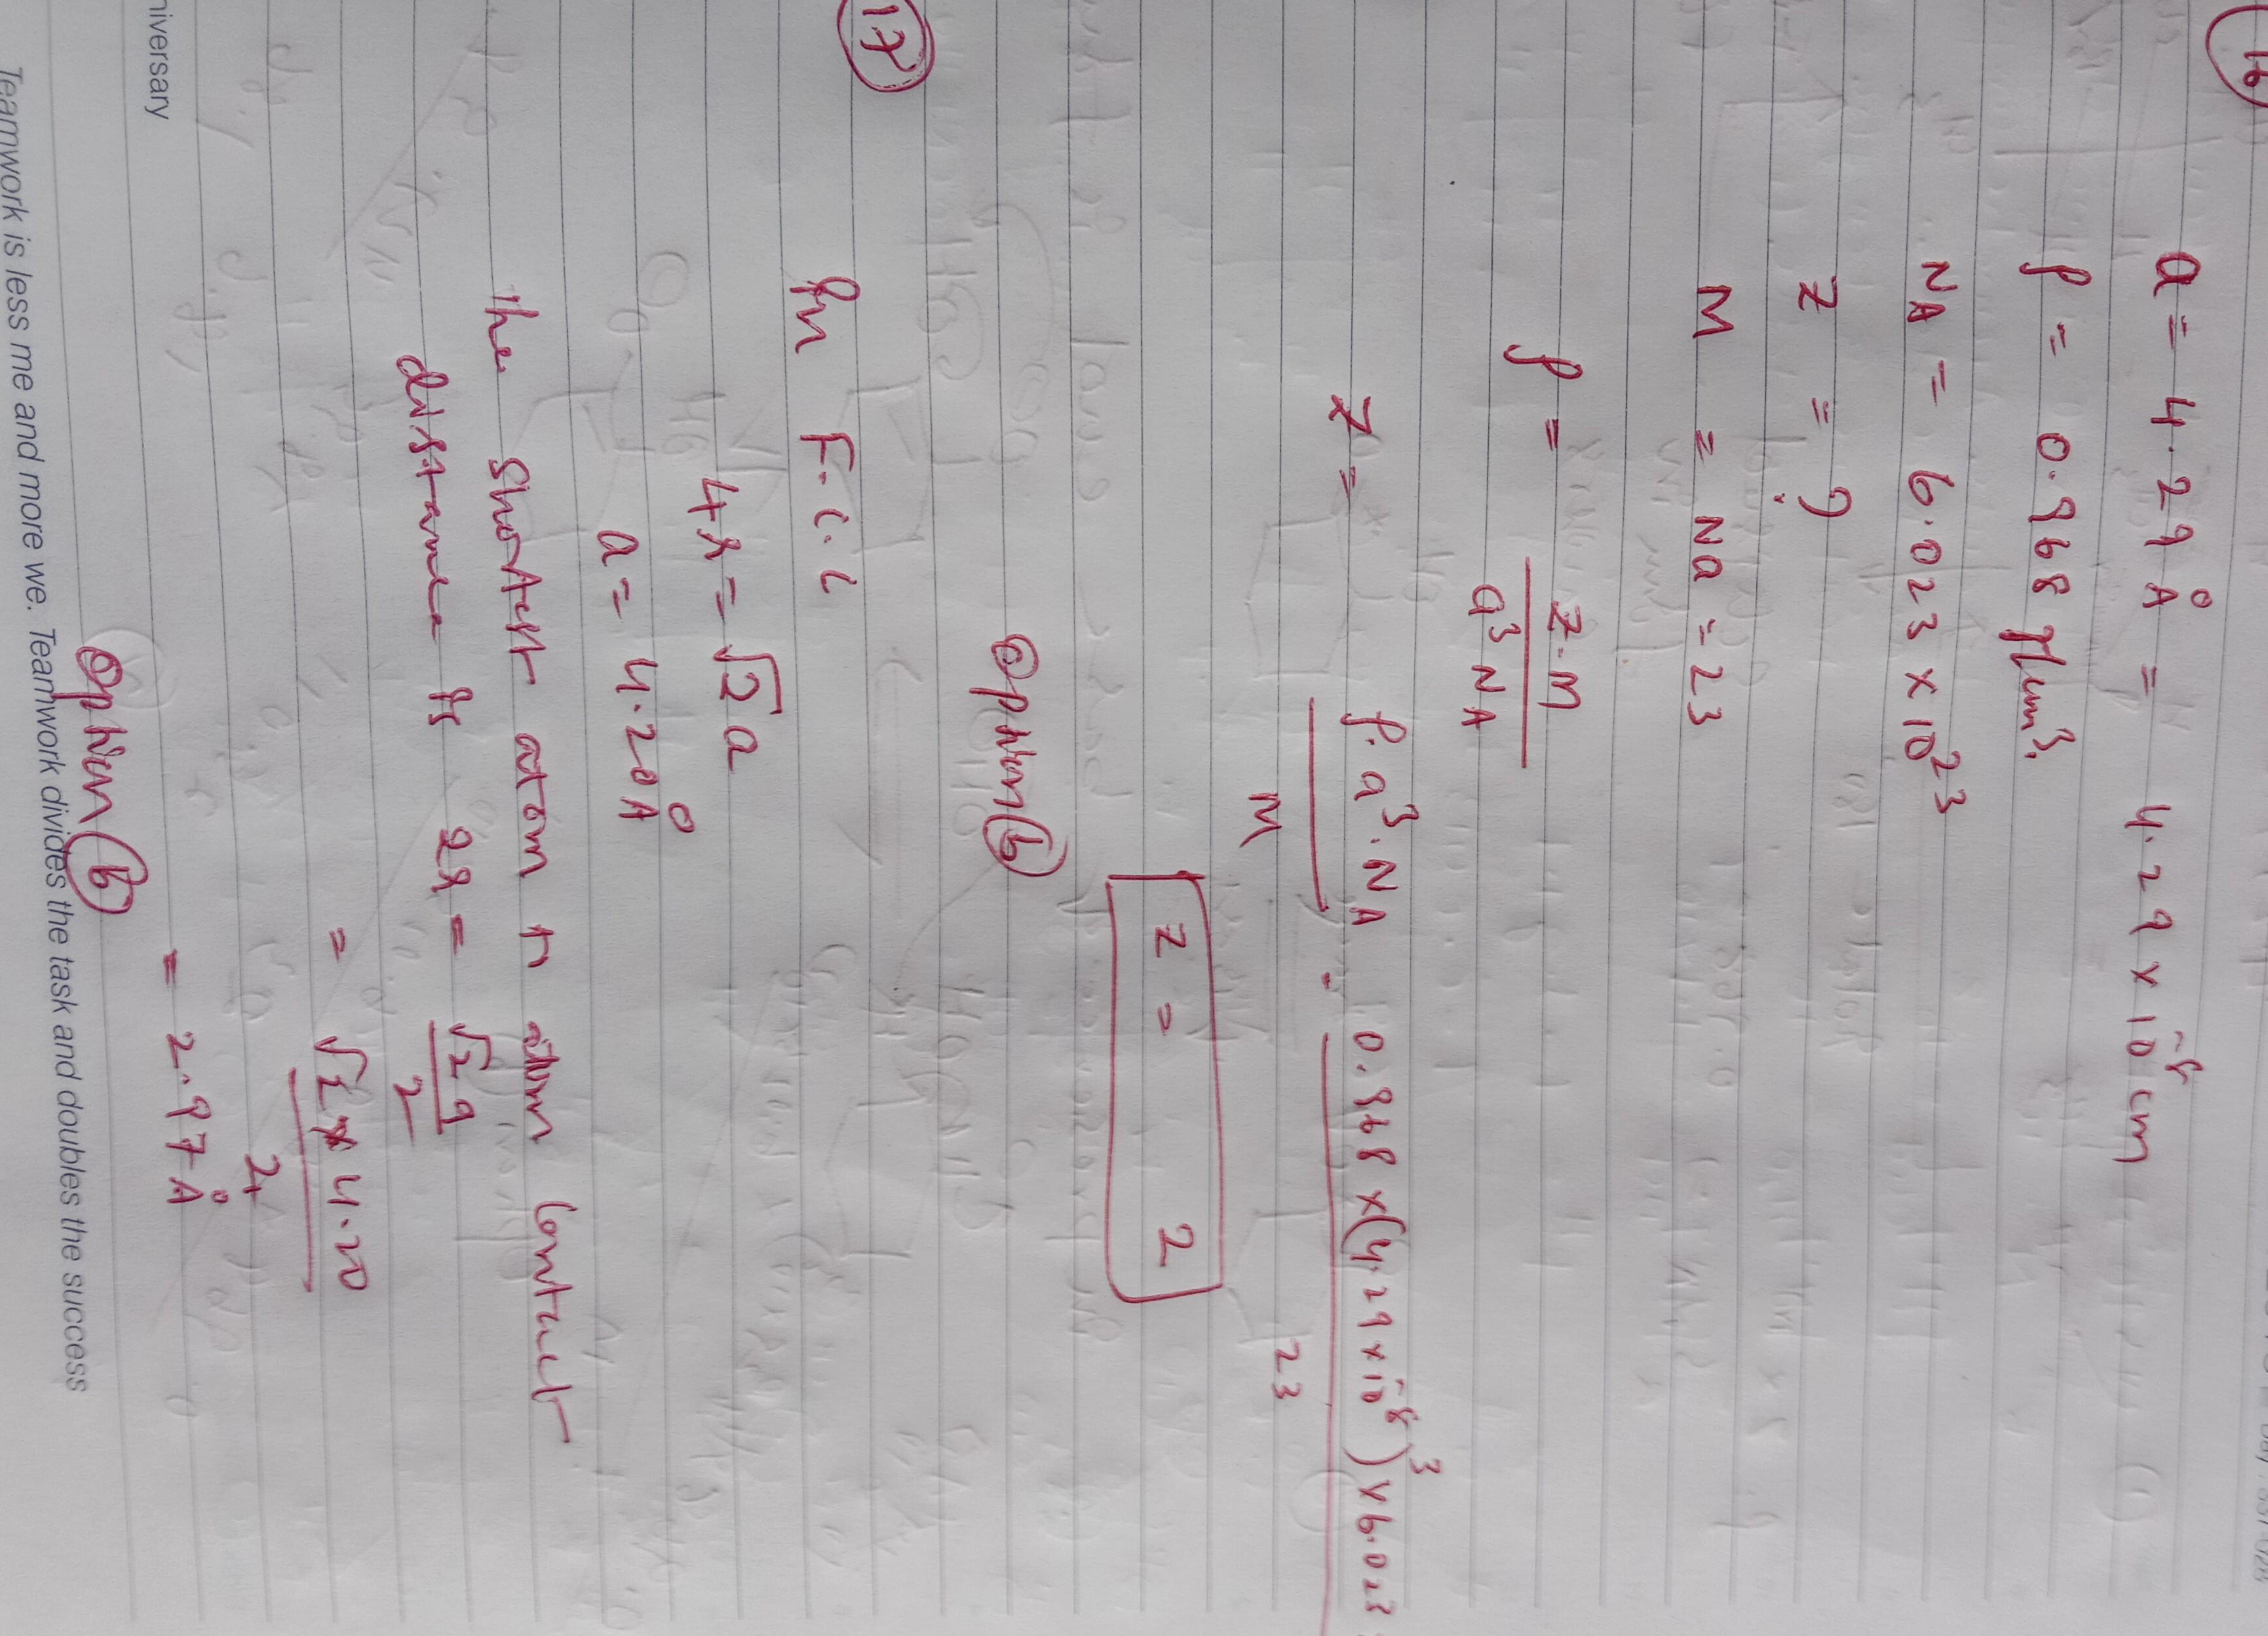 16
a = 4.29 Å = 4.29 × 10⁻⁸ cm
ρ = 0.968 g/cm³.
N_A = 6.023 × 10²³
Z = ?
M = Na = 23
ρ = Z·M / a³ N_A
Z = ρ·a³·N_A / M = 0.968 × (4.29 × 10⁻⁸)³ × 6.023 / 23
Z = 2
Option (b)
17
In F.C.C
4r = √2 a
a = 4.20 Å
the shortest atom n atom contact
distance is 2r = √2 a / 2
= √2 × 4.20 / 2
= 2.97 Å
Option (b)
niversary
Teamwork is less me and more we. Teamwork divides the task and doubles the success